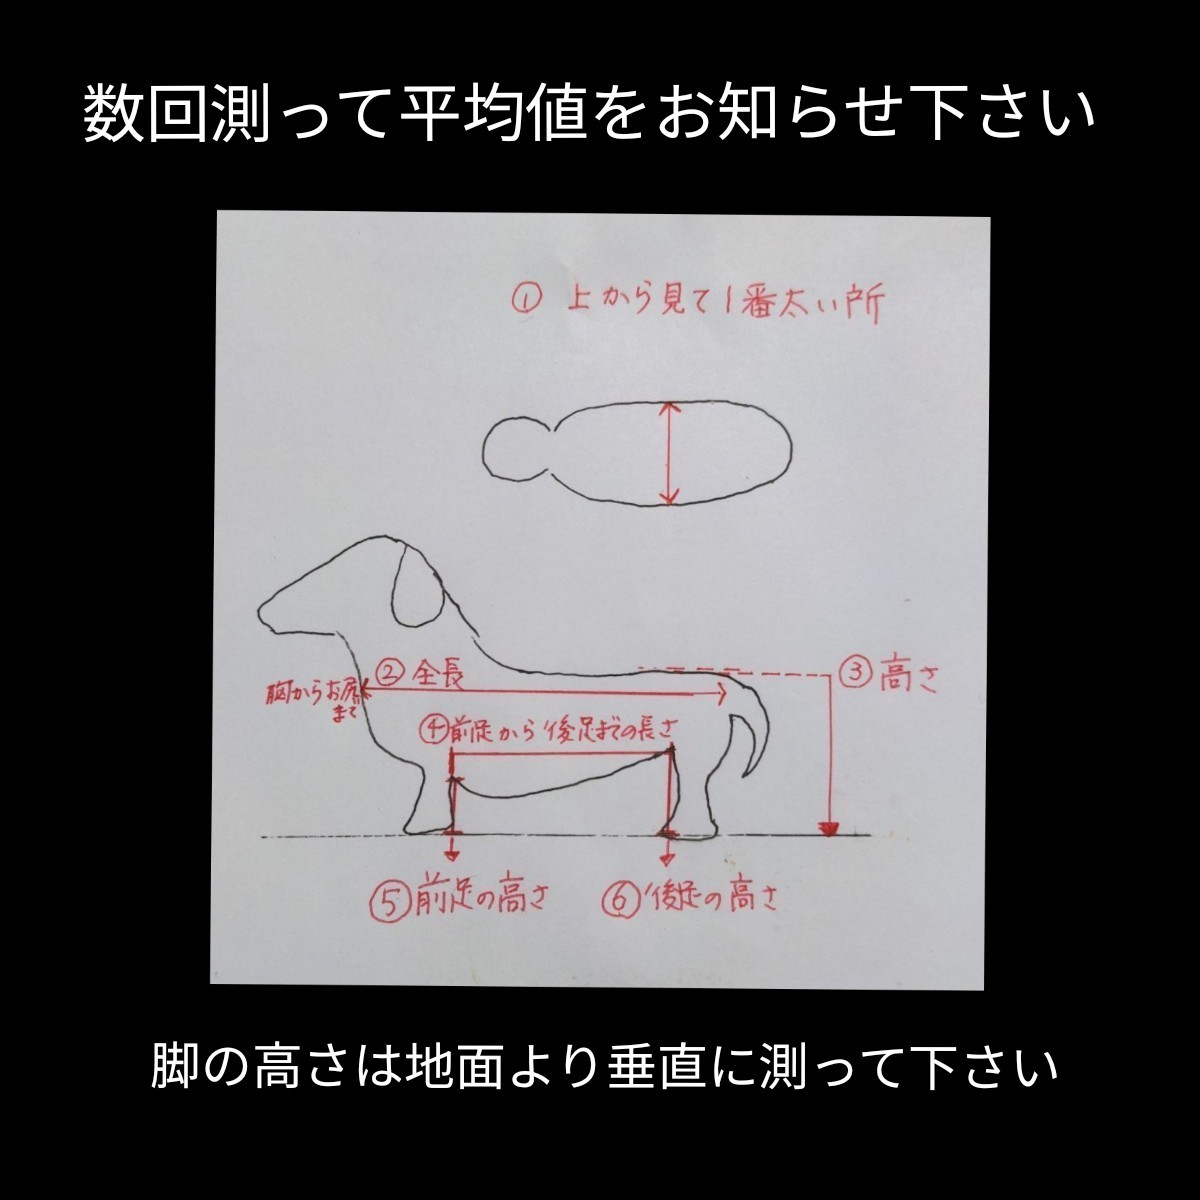 数回測って平均値をお知らせ下さい
① 上から見て1番太い所
② 全長
胸からお尻
まで
③ 高さ
④前足から後足までの長さ
⑤前足の高さ
⑥後足の高さ
脚の高さは地面より垂直に測って下さい